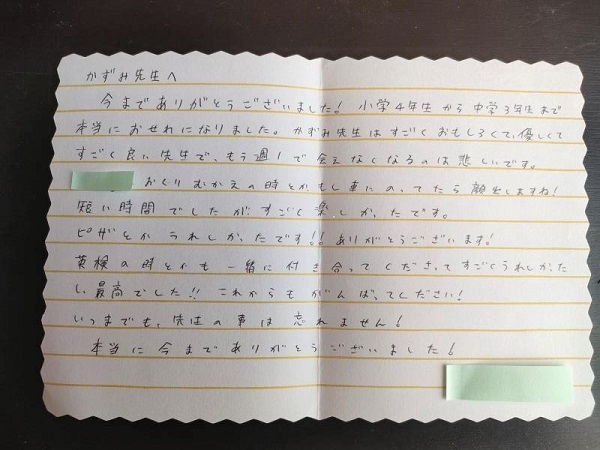 かずみ先生へ
今までありがとうございました! 小学4年生から中学3年生まで
本当におせわになりました。かずみ先生はすごくおもしろくて、優しくて
すごく良い先生で、もう週1で会えなくなるのは悲しいです。
おくりむかえの時とかもし車にのってたら顔出しますね!
短い時間でしたがすごく楽しかったです。
ピザとかうれしかったです!! ありがとうございます!
英検の時とかも一緒に付き合ってくださってすごくうれしかった
し、最高でした!! これからもがんばってください!
いつまでも、先生の事は忘れません!
本当に今までありがとうございました!